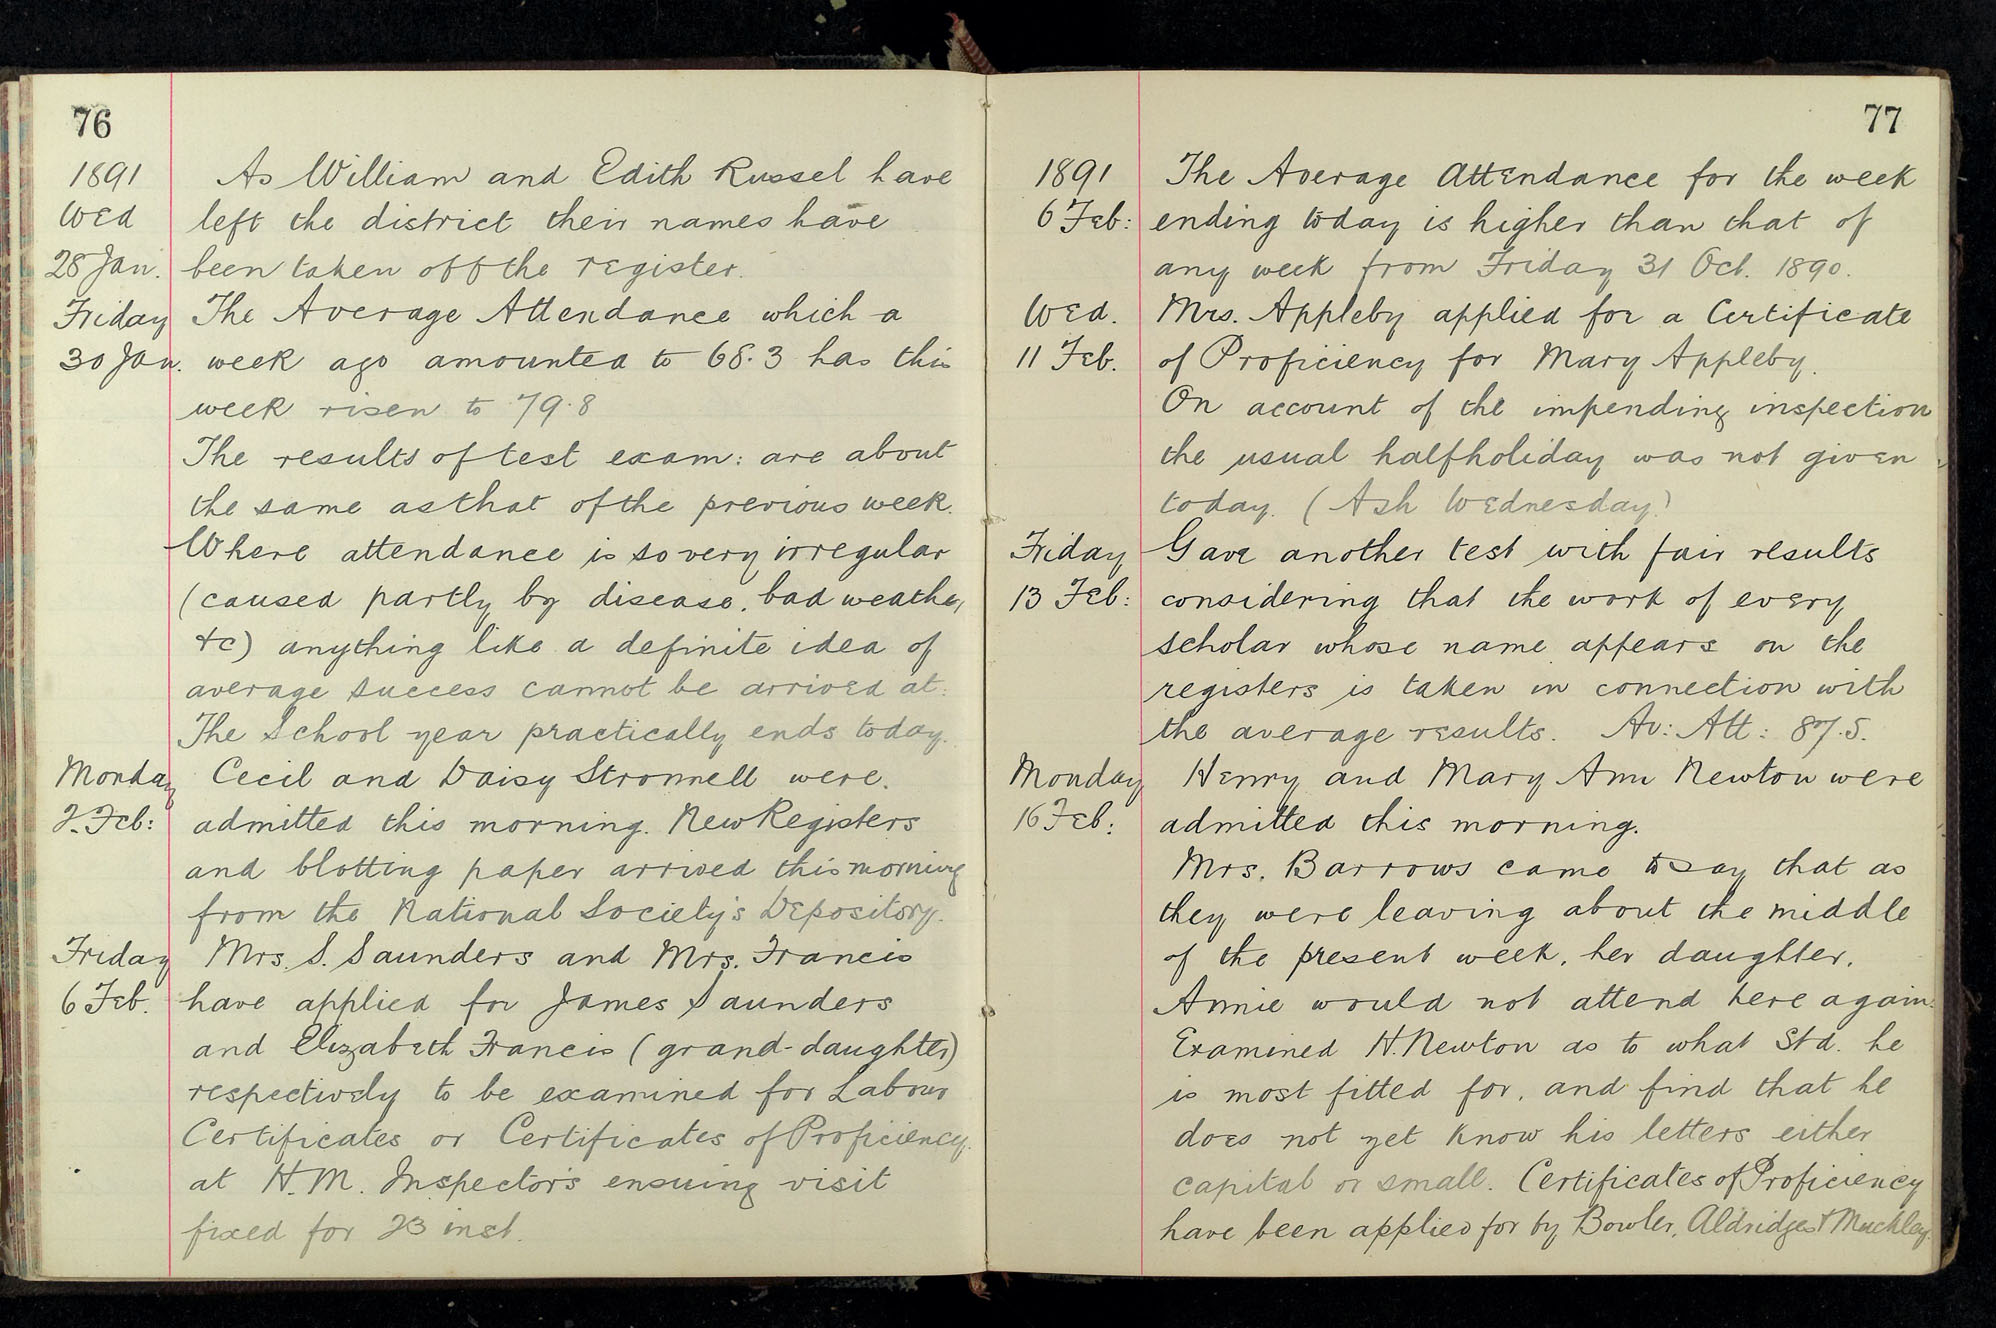 76
1891 As William and Edith Russel have
Wed left the district their names have
28 Jan. been taken off the register.
Friday The Average Attendance which a
30 Jan. week ago amounted to 68.3 has this
week risen to 79.8
The results of test exam: are about
the same as that of the previous week.
Where attendance is so very irregular
(caused partly by disease, bad weather,
&c) anything like a definite idea of
average success cannot be arrived at.
The School year practically ends today.
Monday Cecil and Daisy Stronnell were
2. Feb: admitted this morning. New Registers
and blotting paper arrived this morning
from the National Society's Depository.
Friday Mrs. S. Saunders and Mrs. Francis
6 Feb. have applied for James Saunders
and Elizabeth Francis (grand-daughter)
respectively to be examined for Labour
Certificates or Certificates of Proficiency.
at H.M. Inspector's ensuing visit
fixed for 23 inst.
77
1891 The Average Attendance for the week
6 Feb: ending today is higher than that of
any week from Friday 31 Oct. 1890.
Wed. Mrs. Appleby applied for a Certificate
11 Feb. of Proficiency for Mary Appleby.
On account of the impending inspection
the usual halfholiday was not given
today. (Ash Wednesday)
Friday Gave another test with fair results
13 Feb: considering that the work of every
scholar whose name appears on the
registers is taken in connection with
the average results. Av: Att: 87.5.
Monday Henry and Mary Ann Newton were
16 Feb: admitted this morning.
Mrs. Barrows came to say that as
they were leaving about the middle
of the present week, her daughter,
Annie would not attend here again.
Examined H. Newton as to what Std. he
is most fitted for, and find that he
does not yet know his letters either
capital or small. Certificates of Proficiency
have been applied for by Bowler, Aldridge & Muckley.